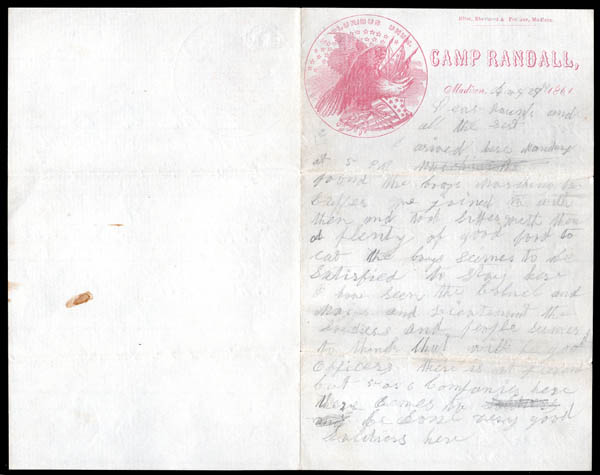 E PLURIBUS UNUM
CAMP RANDALL,
Madison, Aug 29th 1861
and
all the rest
I arived here Monday
at 5 P.M.
found the boys marching to
supper we joined in with
them and took supper with them
plenty of good food to
eat the boys seemes to be
satisfied to stay here
I have seen the Colonel and
Major and Lieutenant the
and people seemes
to think that will be good
officers there is at present
but 5 or 6 Companies here
there seemes to
be some very good
Soldiers here